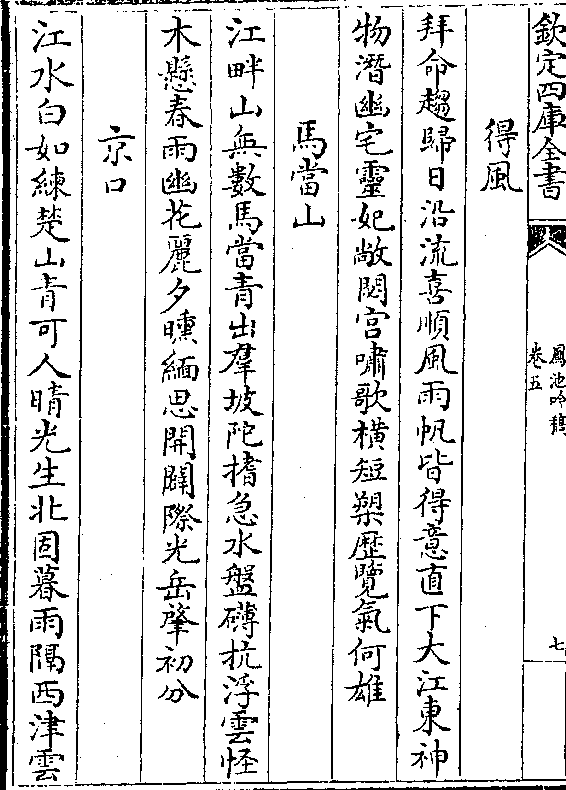 欽定四庫全書
鳳池吟稿
卷五
七
得風
拜命趨歸日沿流喜順風雨帆皆得意直下大江東神
物潛幽宅靈妃敞閟宮嘯歌橫短槊歷覽氣何雄
馬當山
江畔山無數馬當青出羣坡陀搘急水盤礴抗浮雲怪
木懸春雨幽花麗夕曛緬思開闢際光岳肇初分
京口
江水白如練楚山青可人晴光生北固暮雨隔西津雲